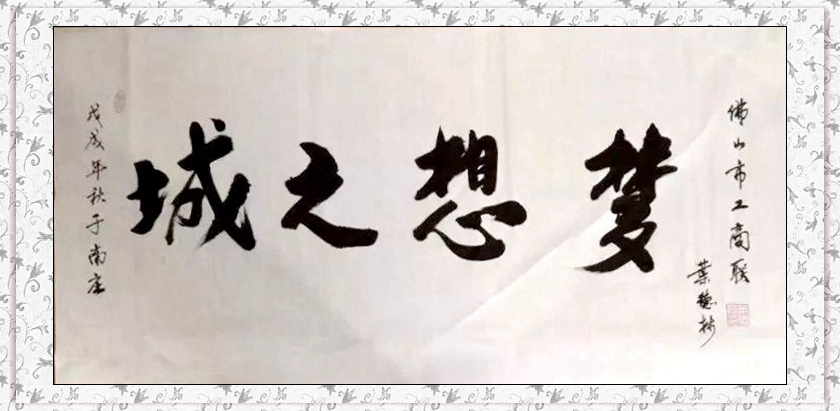 佛山市工商联
葉德林
梦想之城
戊戌年秋于南庄